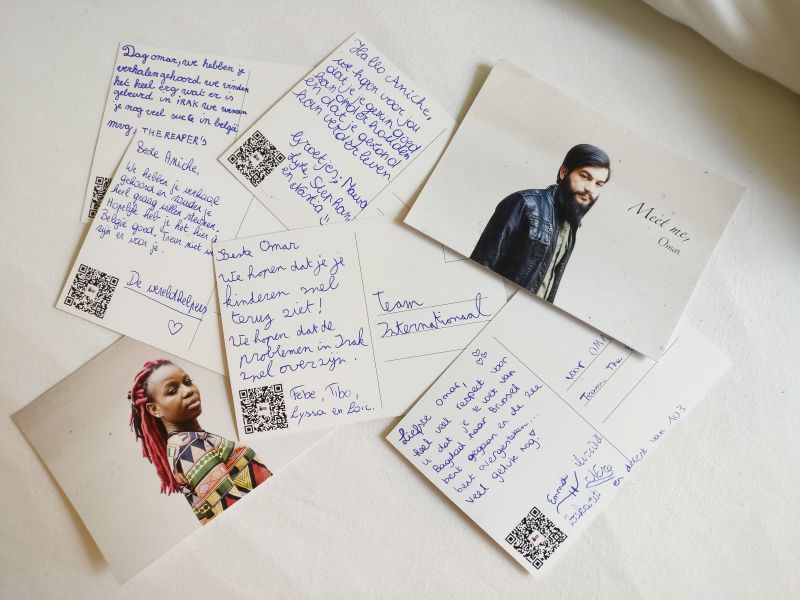 Dag omar, we hebben je
verhalen gehoord we vinden
het heel erg wat er is
gebeurd in iRAK we wensen
je nog veel succe in belgië
mvg, THE REAPER'S
Hallo Amiche,
we hopen voor jou
dat je je gezin goed
kan onder houden
en dat je gezond
kan verder leven
Groetjes: Nawa
Lyke, Stephan,
en Nastia"
Beste Amiche,
We hebben je verhaal
gehoord en zouden je
heel graag willen steunen.
Hopelijk heb je het hier in
België goed. Treur niet
zijn er voor je.
De wereldhelpers
Beste Omar
We hopen dat je je
kinderen snel
terug ziet!
We hopen dat de
problemen in Irak
snel over zijn.
Febe, Tibo,
Lyssa en Loïc.
Team
Internationaal
Meet me,
Omar
voor OMA
Team The
Liefste Omar,
heel veel respect voor
u dat je te voet van
Bagdad naar Brussel
bent gegaan en de zee
bent overgestoken...
veel geluk nog
Emma
en de rest van 103